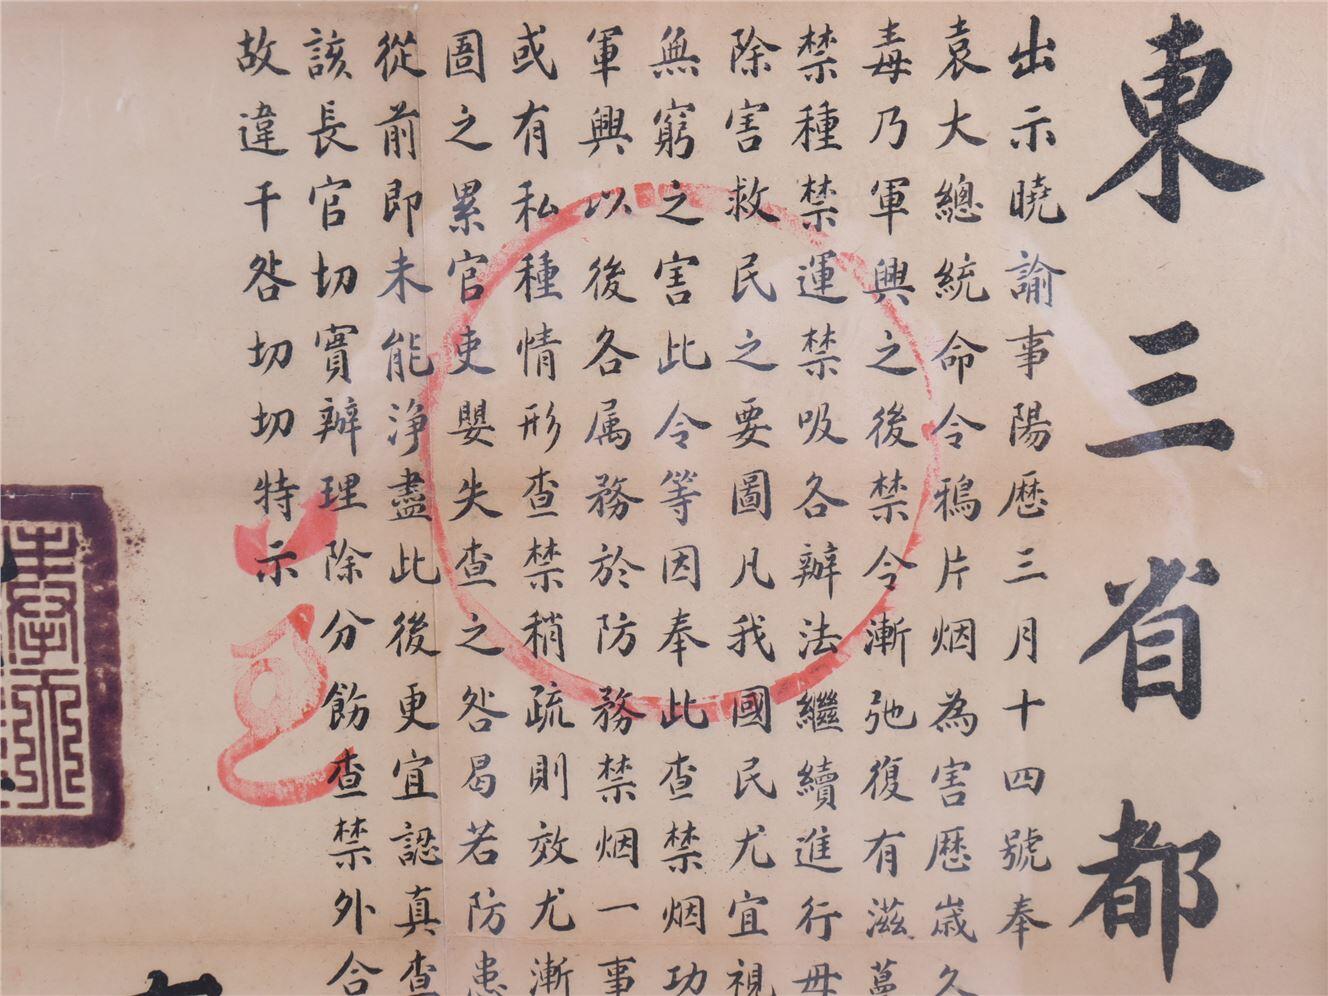 東三省都
出示曉諭事陽歷三月十四號奉
袁大總統命令鴉片烟為害歷歲久
毒乃軍興之後禁令漸弛復有滋蔓
禁種禁運禁吸各辦法繼續進行毋
除害救民之要圖凡我國民尤宜視
無窮之害此令等因奉此查禁烟功
軍興以後各属務於防務禁烟一事
或有私種情形查禁稍疏則效尤漸
圖之累官吏嬰失查之咎曷若防患
從前即未能淨盡此後更宜認真查
該長官切實辦理除分飭查禁外合
故違干咎切切特示